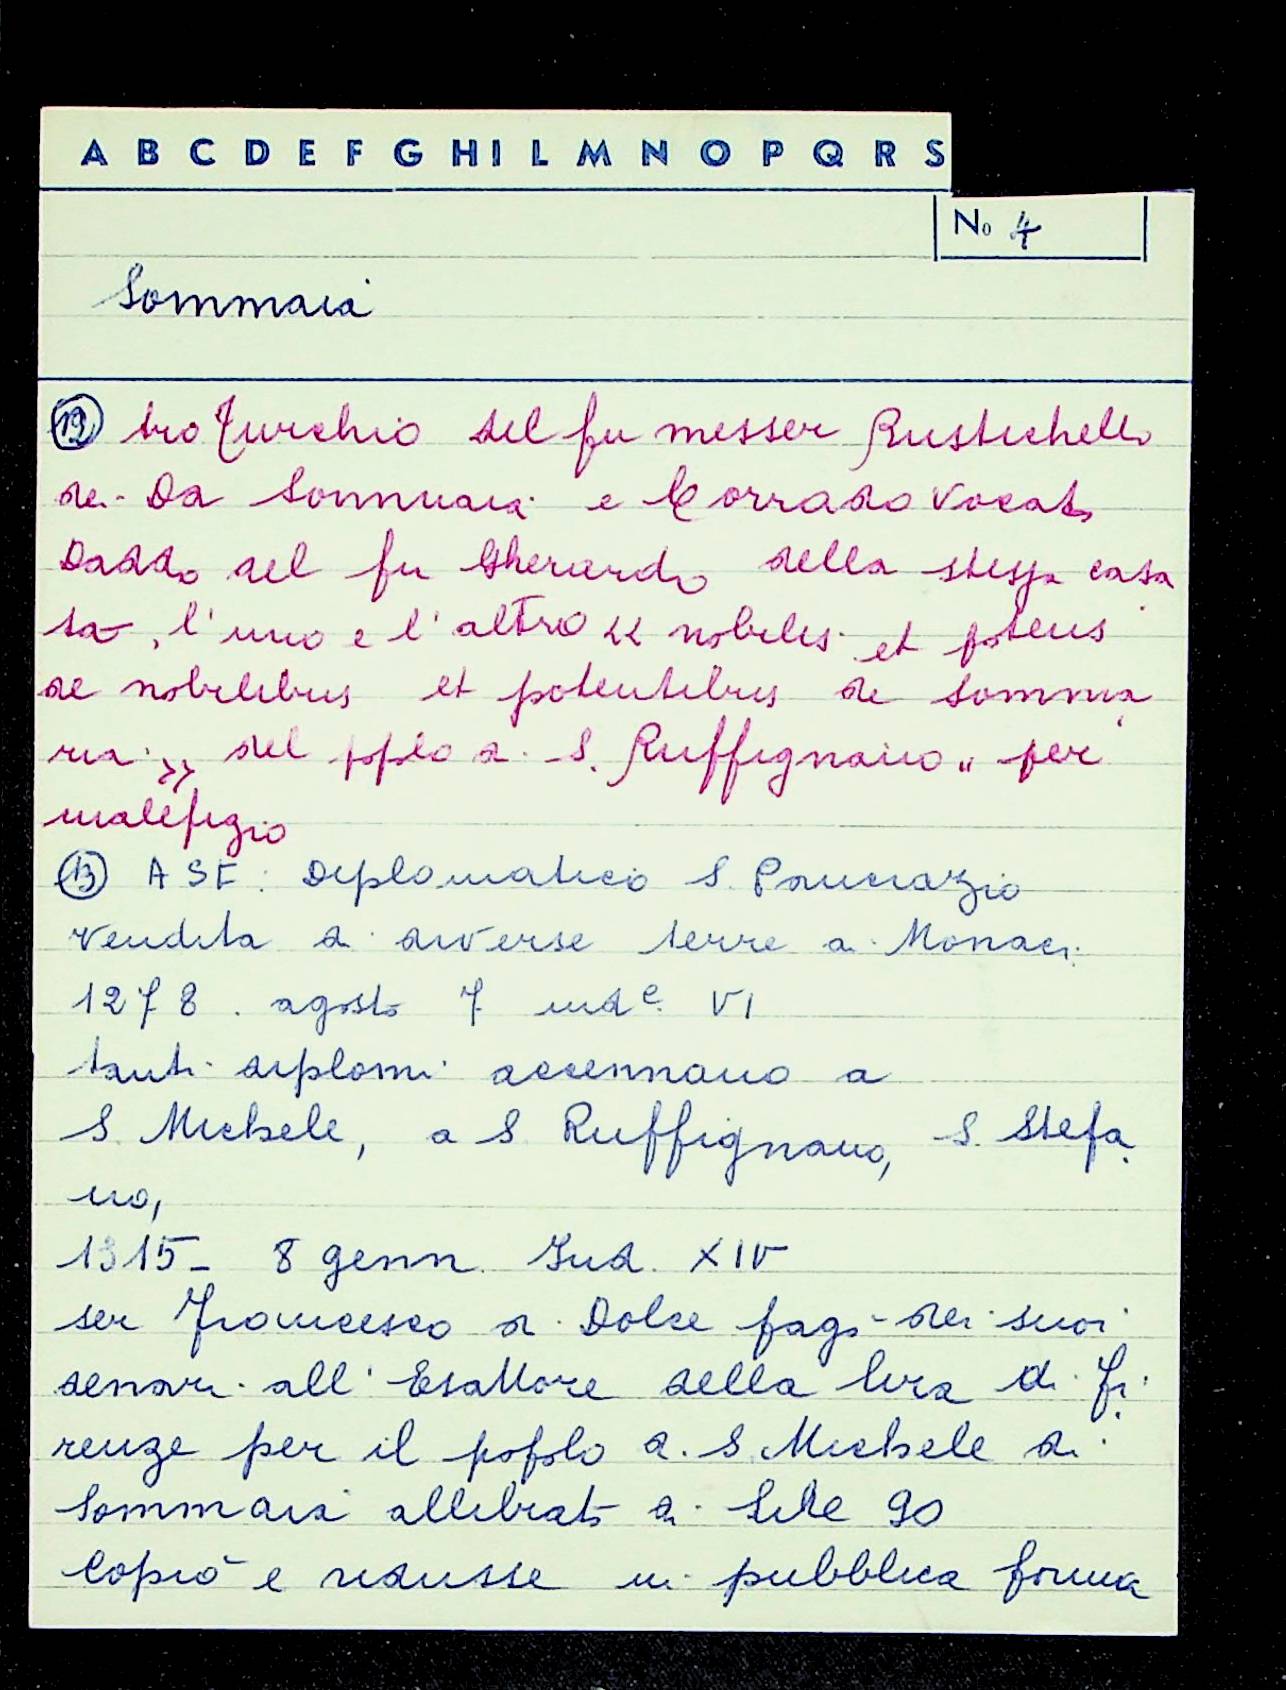 A B C D E F G H I L M N O P Q R S
No 4
Sommaia
12 tro Turchio del fu messer Rustichello
dei Da Sommaia e Corrado vocato
Daddo del fu Gherardo della stessa casa
ta, l'uno e l'altro « nobiles et potens
de nobilibus et potentibus de Somma
ria » del popolo di S. Ruffignano " per
malefizio
13 ASF: Diplomatico S. Pancrazio
Vendita di diverse terre ai Monaci
1278. agosto 7 ind.e VI
tanti diplomi accennano a
S. Michele, a S Ruffignano, S. Stefa
no,
1315 - 8 genn. Ind. XIV
ser Francesco di Dolce pagò dei suoi
denari all'Esattore della lira di Fi
renze per il popolo di S. Michele di
Sommaia allibrato di Lire 90
Copiò e ridusse in pubblica forma